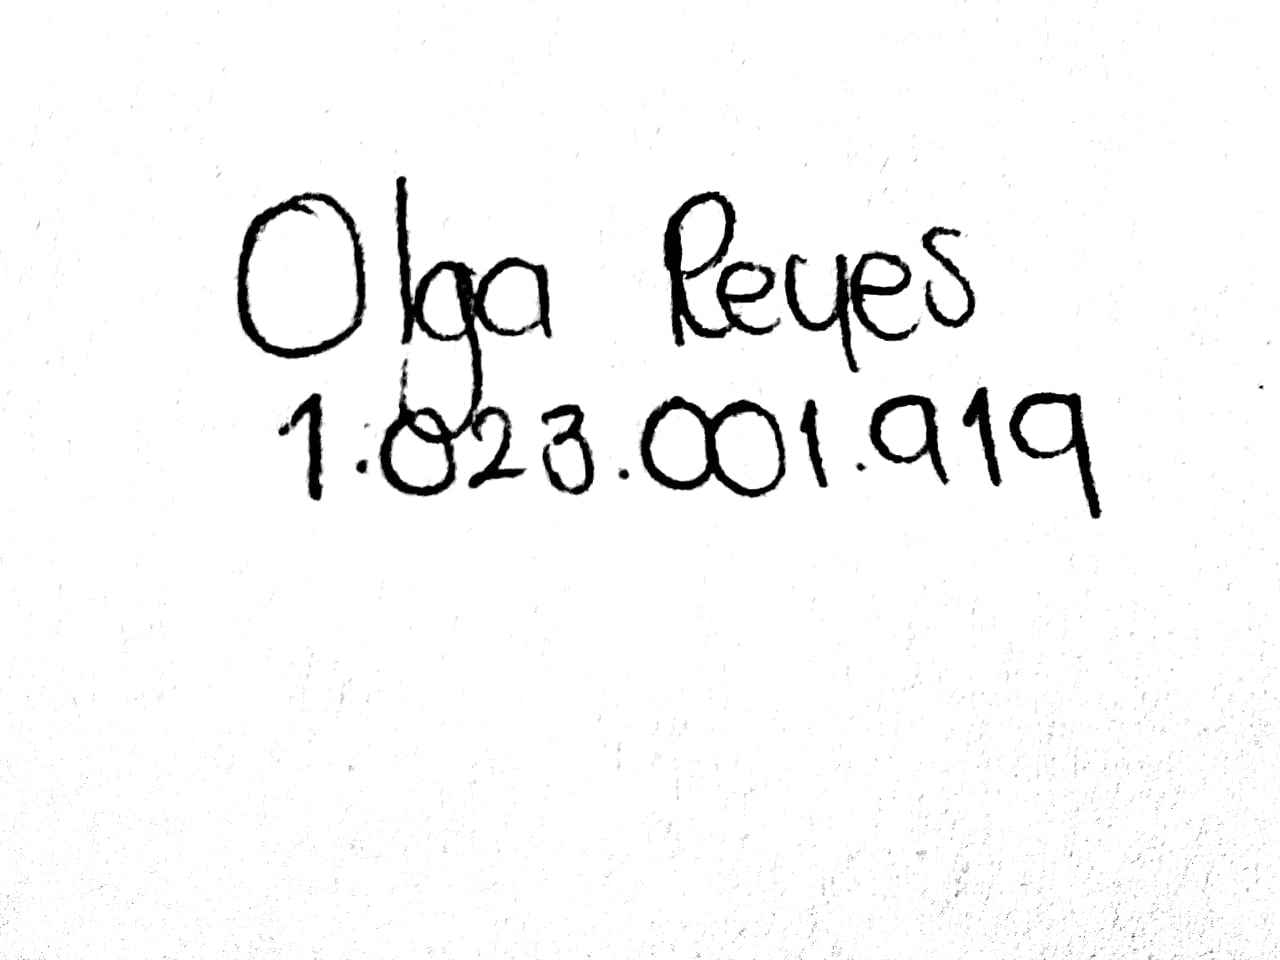 Olga Reyes
1.023.001.919